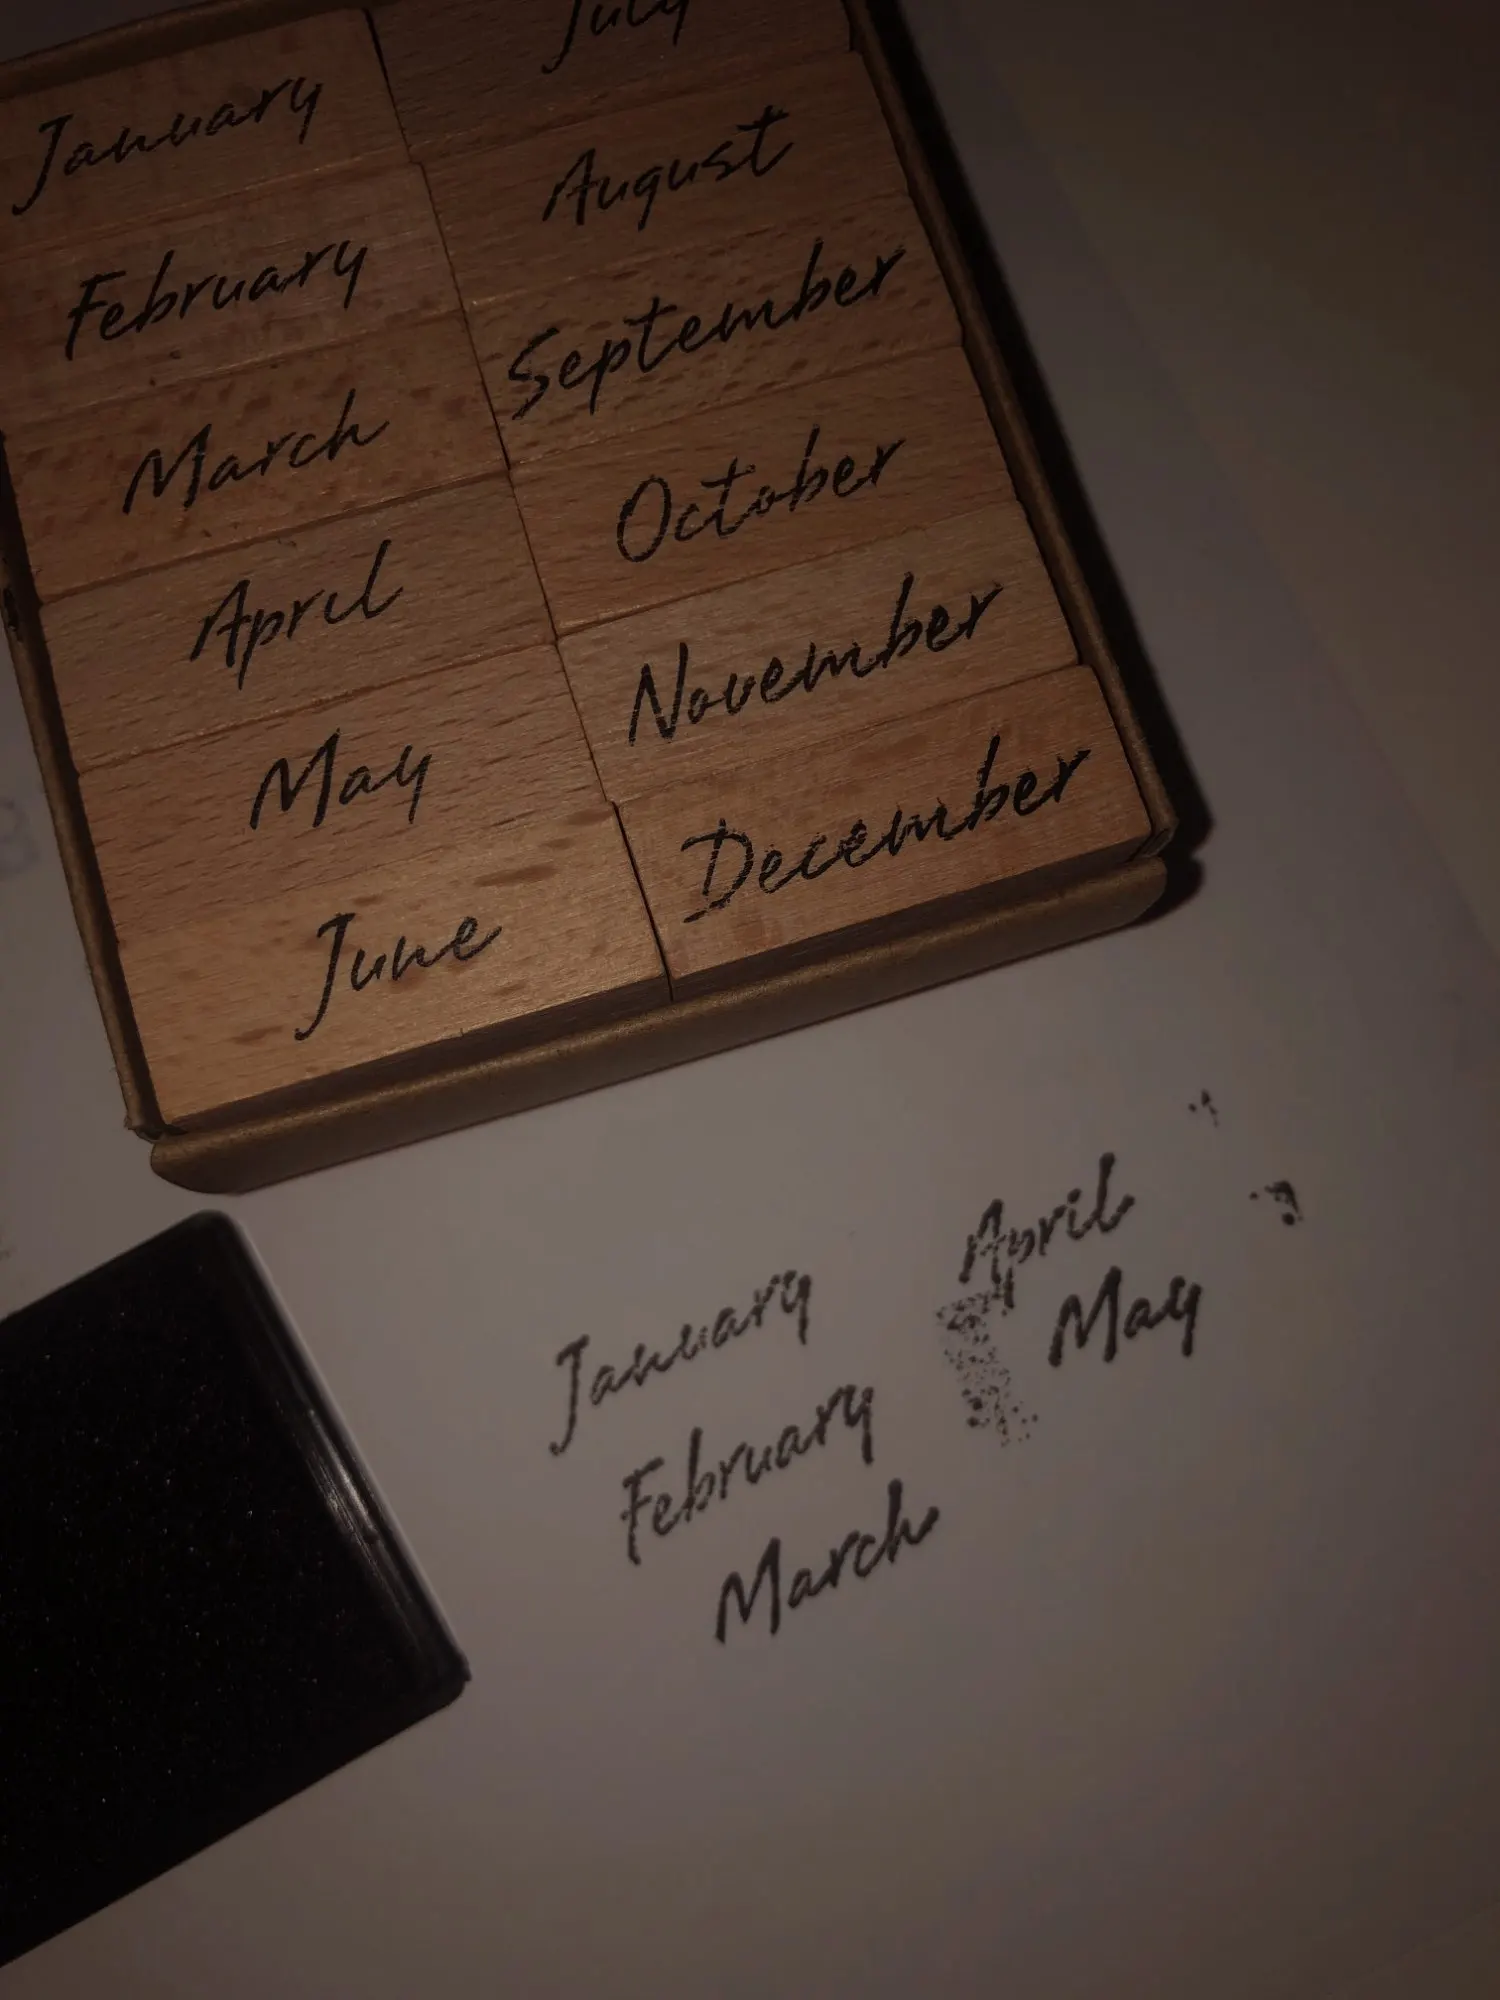 January
February
March
April
May
June
July
August
September
October
November
December
January
February
March
April
May